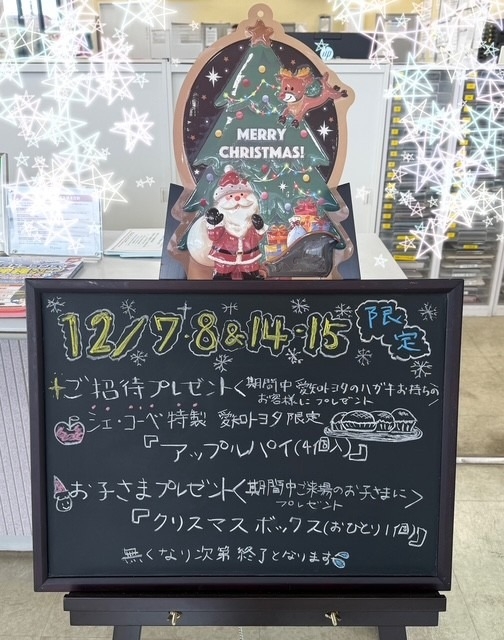 MERRY
CHRISTMAS!
12/7・8&14・15
限定
ご招待プレゼント<期間中愛知トヨタのハガキお持ちの
お客様にプレゼント>
シェ・コーベ特製 愛知トヨタ限定
『アップルパイ(4個入)』
お子さまプレゼント<期間中ご来場のお子さまに
プレゼント>
『クリスマスボックス(おひとり1個)』
無くなり次第終了となります